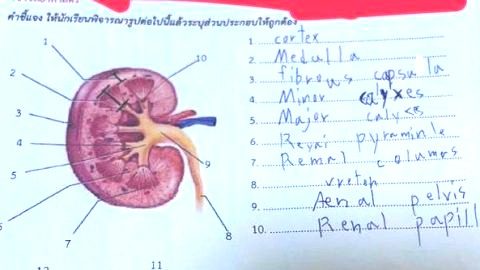 คำชี้แจง ให้นักเรียนพิจารณารูปต่อไปนี้แล้วระบุส่วนประกอบให้ถูกต้อง
1
10
2
3
4
9
5
6
7
8
11
1. cortex
2. Medulla
3. fibrous capsula
4. Minor calyxes
5. Major calyces
6. Renai pyraminle
7. Remal columns
8. vreton
9. Aenal pelvis
10. Renal papill